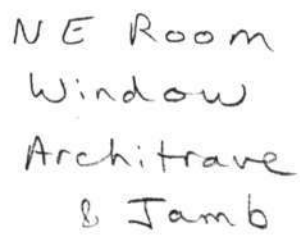 NE Room
Window
Architrave
& Jamb